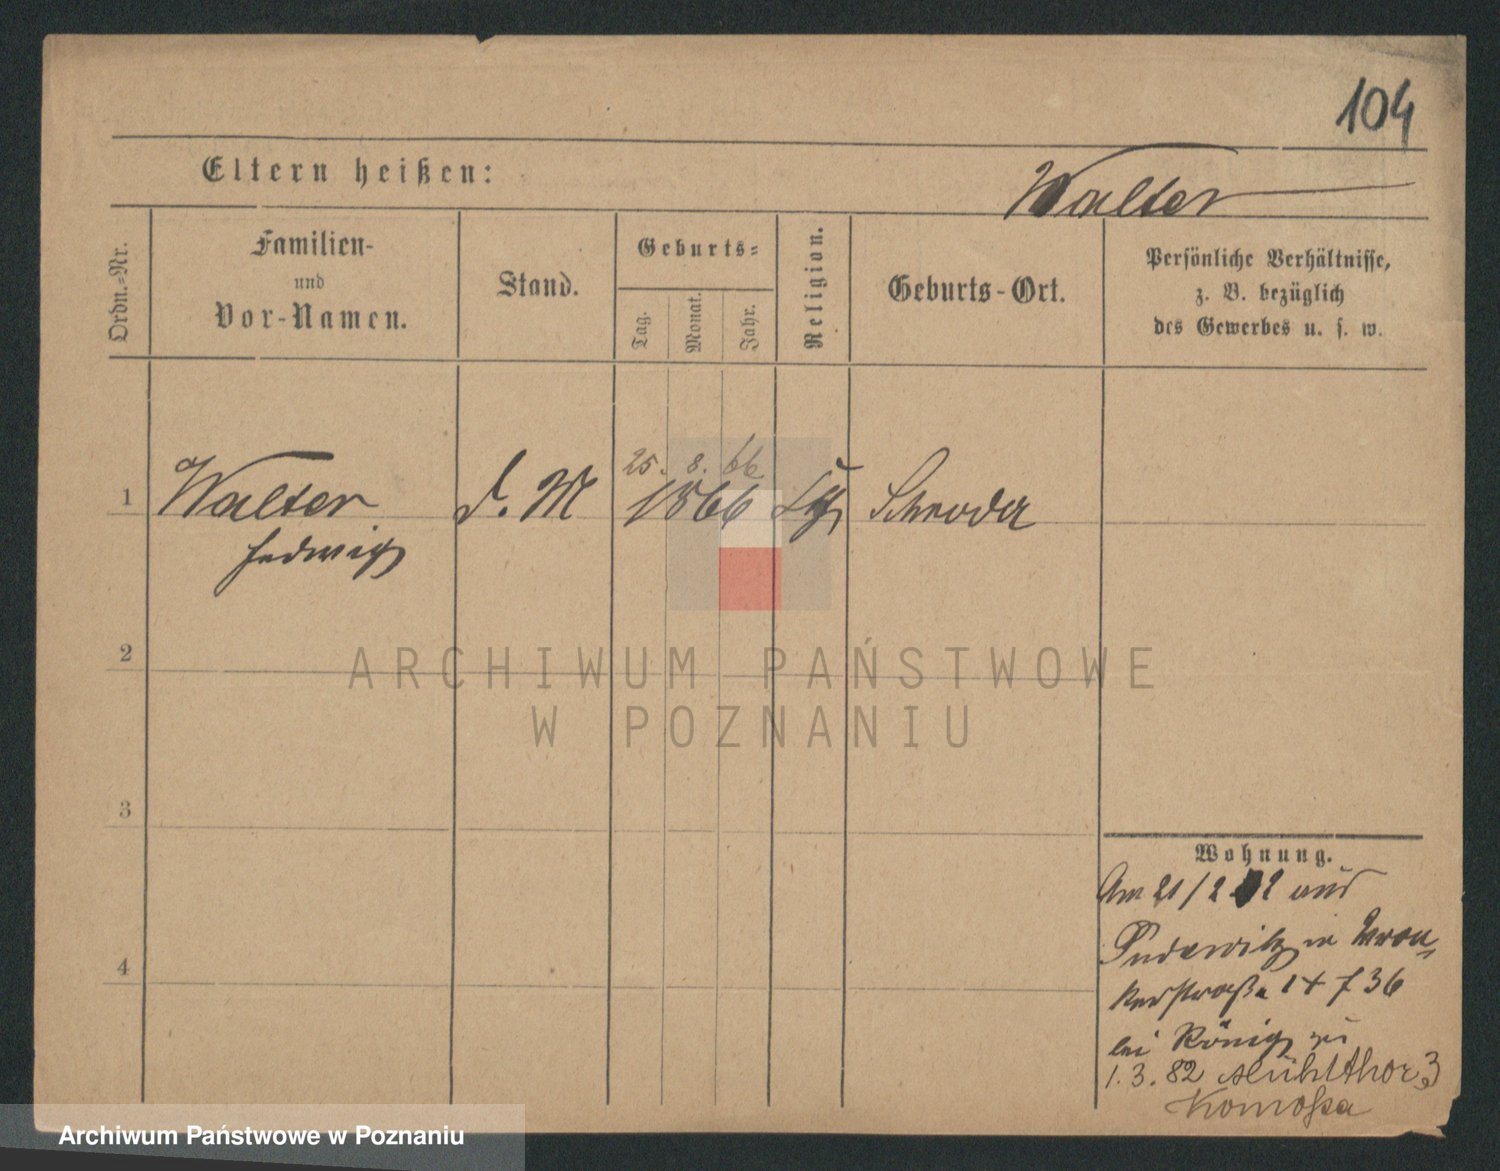 104
Eltern heißen:
Walter
Ordn.-Nr.
Familien-
und
Vor-Namen.
Stand.
Geburts-
Tag.
Monat.
Jahr.
Religion.
Geburts-Ort.
Persönliche Verhältnisse,
z. B. bezüglich
des Gewerbes u. s. w.
25. 8. 66
1 Walter d. M 1866 Schroda
Hedwig
2
ARCHIWUM PAŃSTWOWE
W POZNANIU
3
Wohnung.
Am 21/2 82 aus
Pudewitz in Wron-
kerstraße 36
bei König zu
1.3.82 Mühlthor 3
4
Archiwum Państwowe w Poznaniu